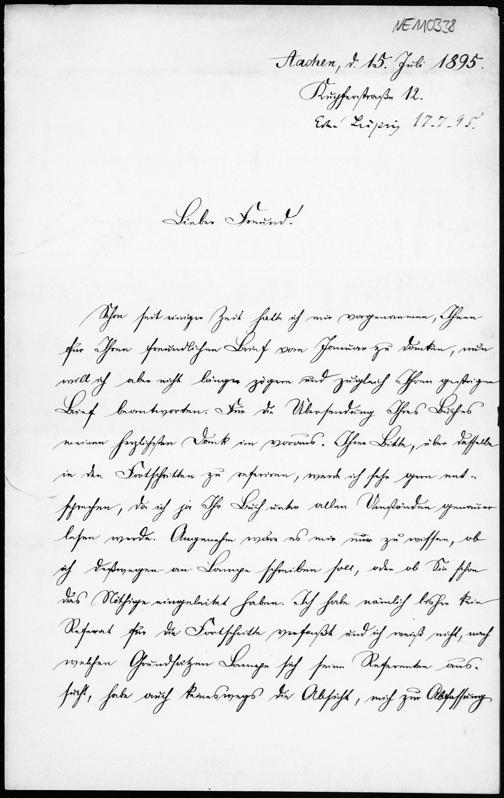 NE 110338
Aachen, d. 15. Juli 1895.
Kupferstraße 12.
Leipzig 17.7.95.
Lieber Freund!
Schon seit einiger Zeit hatte ich mir vorgenommen, Ihnen
für Ihren freundlichen Brief vom Januar zu danken, nun
will ich aber nicht länger zögern und zugleich Ihren gestrigen
Brief beantworten. Für die Übersendung Ihres Buches
meinen herzlichsten Dank im voraus. Ihrer Bitte, über dasselbe
in den Fortschritten zu referiren, werde ich sehr gern ent-
sprechen, da ich ja Ihr Buch unter allen Umständen genauer
lesen werde. Angenehm wäre es mir nur zu wissen, ob
ich deßwegen an Lampe schreiben soll, oder ob Sie schon
das Nöthige eingeleitet haben. Ich habe nämlich bisher kein
Referat für die Fortschritte verfaßt und ich weiß nicht, nach
welchen Grundsätzen Lampe sich seine Referenten aus-
sucht, habe auch keineswegs die Absicht, mich zur Abfassung